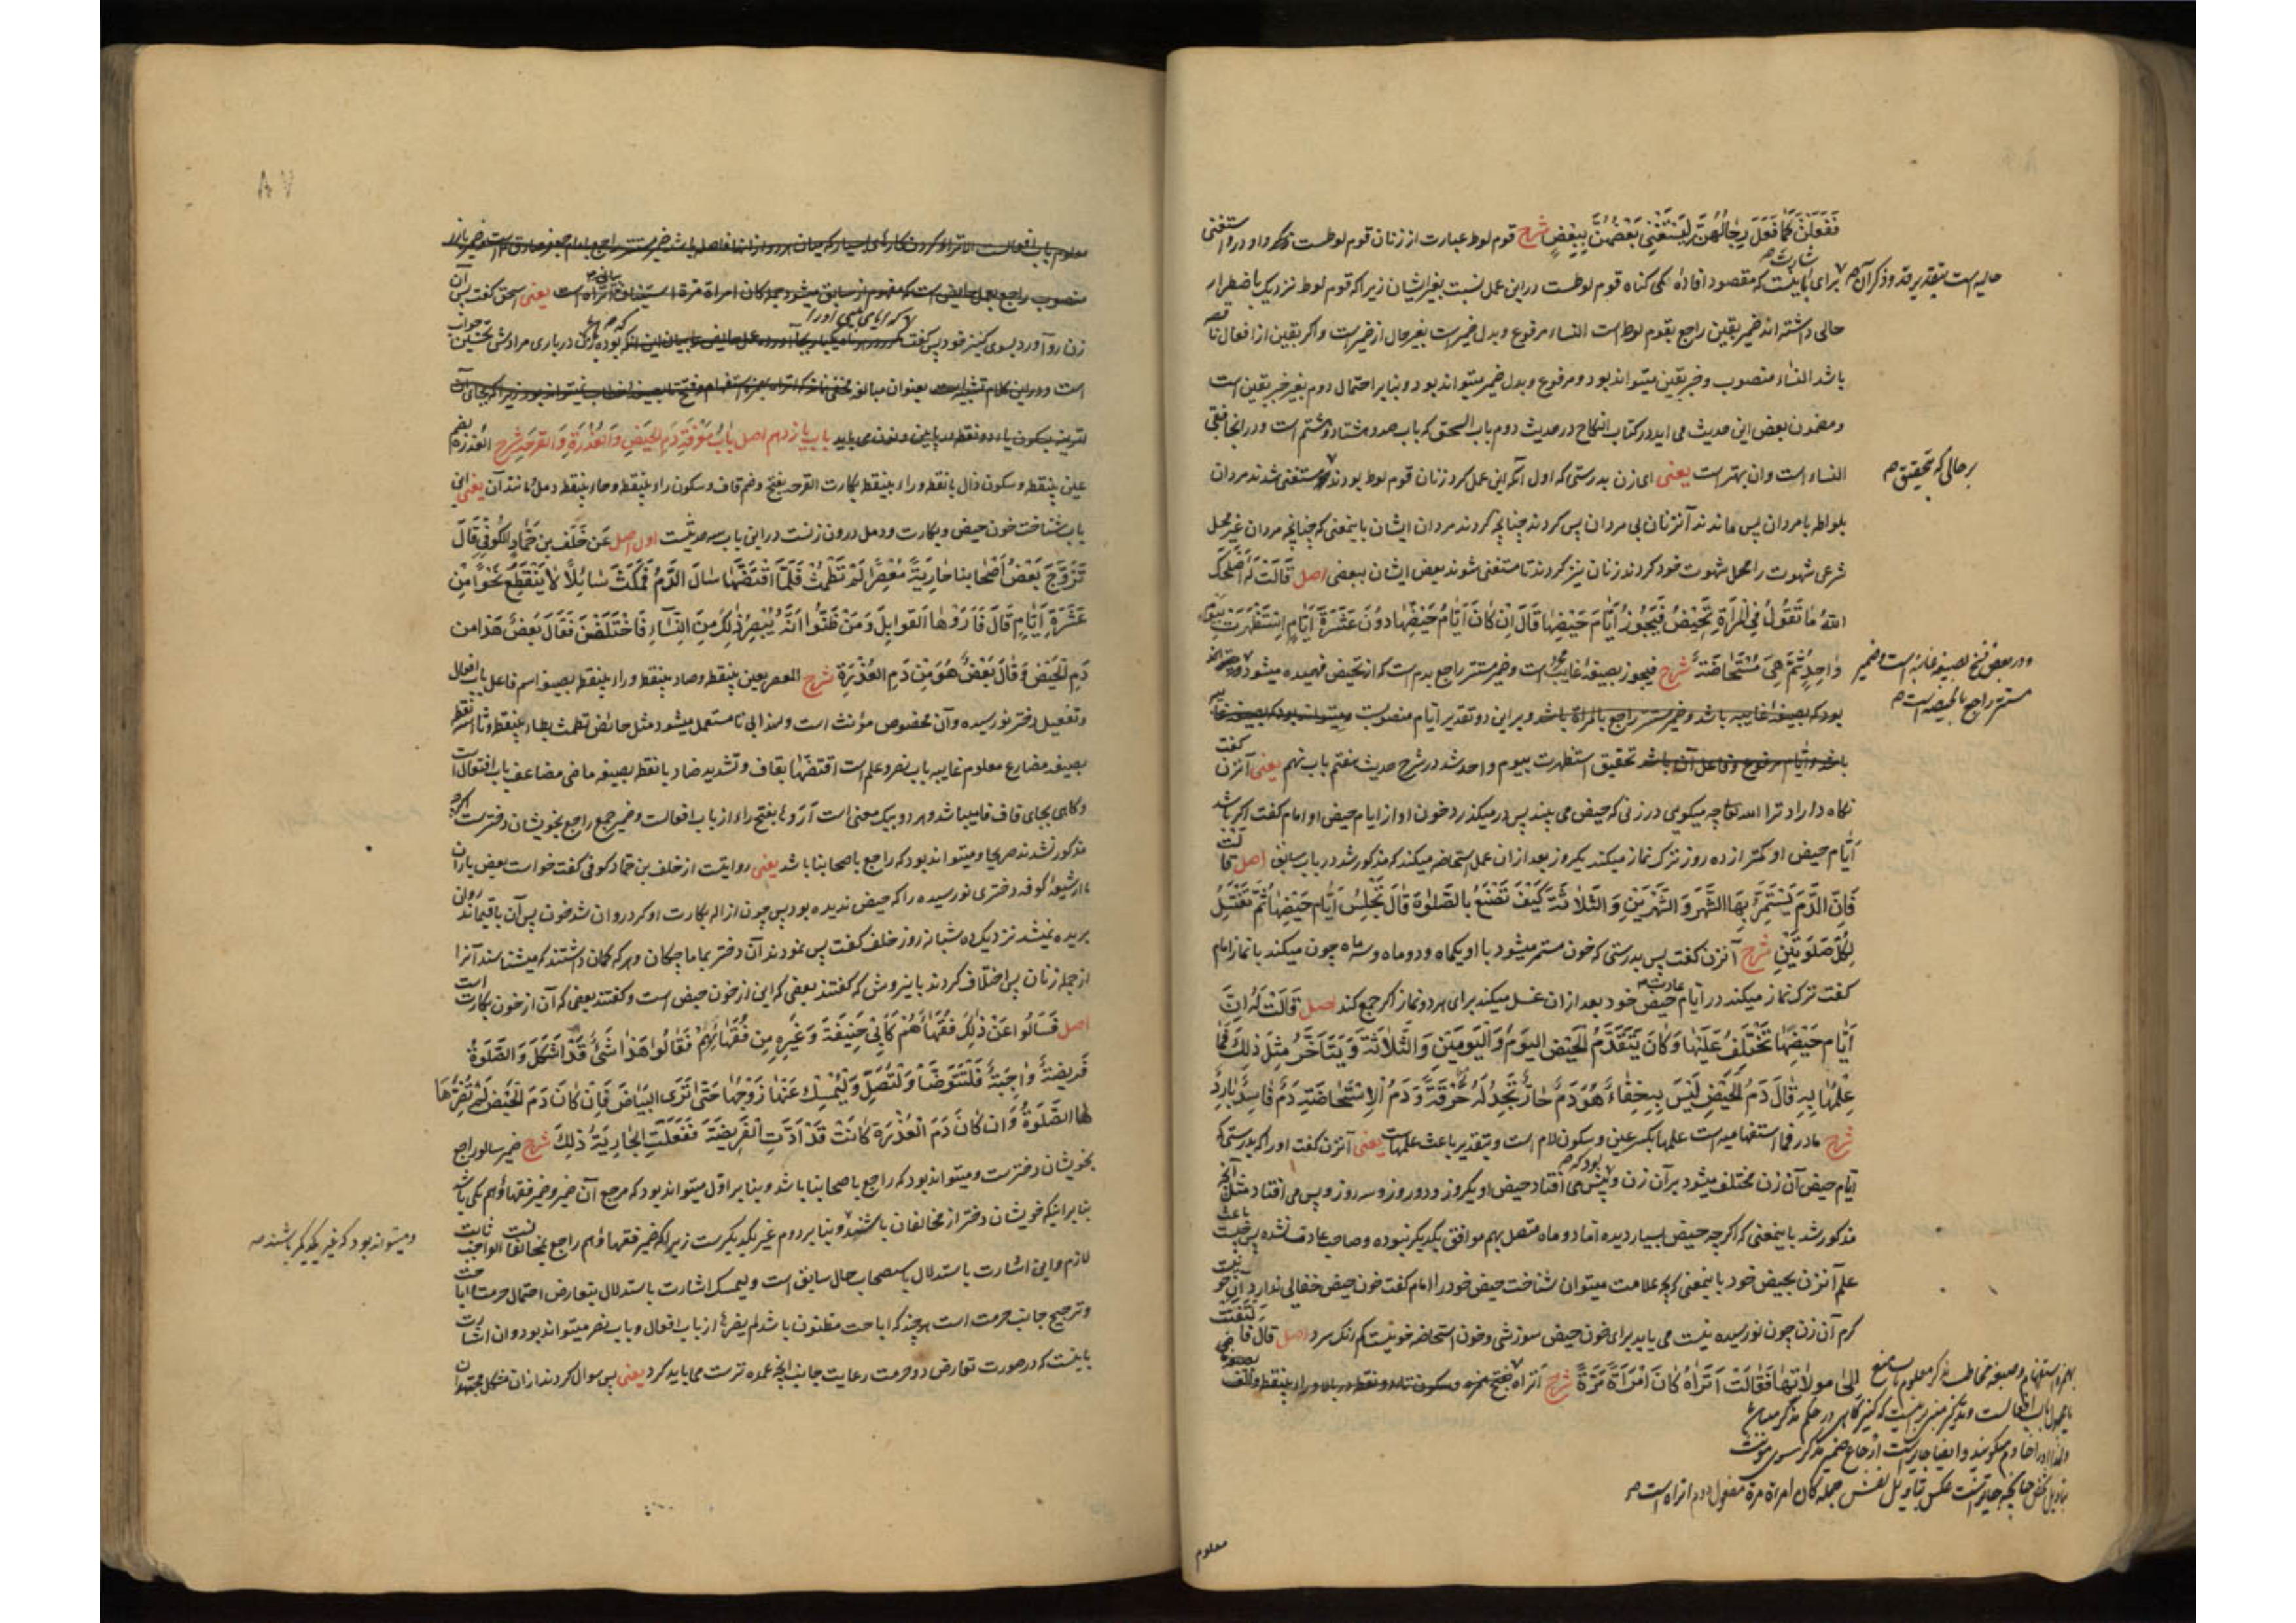 فَفَعَلْنَ كَمَا فَعَلَ رِجَالُهُنَّ لِيَسْتَغْنِيَ بَعْضُهُنَّ بِبَعْضٍ شرح قوم لوط عبارت از زنان قوم لوطست
برای اینست که مقصود افاده کناه قوم لوطست در این عمل نسبت بغیر ایشان زیرا که قوم لوط نزدیک باضطرار
حالیه است بتقدیر قد و ذکر آن
حالی داشته اند ضمیر بقین راجع بقوم لوط است النساء مرفوع و بدل ضمیر است بغیر حال از ضمیر است و اکر بقین از افعال
باشد النساء منصوب و خبر بقین میتواند بود و مرفوع و بدل ضمیر میتواند بود و بنابر احتمال دوم بغیر خبر بقین است
و مضمون بعض این حدیث می اید در کتاب النکاح در حدیث دوم باب السحق که باب صد و هشتاد و ششم است و در آنجا فبقی
النساء است و ان بهتر است یعنی ای زن بدرستی که اول آنکه این عمل کرد زنان قوم لوط بودند مستغنی شدند مردان
بر حالی که بتحقیق
بلواطه با مردان پس ماندند آنزنان بی مردان پس کردند چنانچه کردند مردان ایشان باینمعنی که چنانچه مردان غیر محل
شرعی شهوت را محل شهوت خود کردند زنان نیز کردند تا مستغنی شوند بعض ایشان ببعضی اصل قَالَتْ لَهُ أَصْلَحَكَ
اللهُ مَا تَقُولُ فِي الْمَرْأَةِ تَحِيضُ فَيَجُوزُ أَيَّامَ حَيْضِهَا قَالَ إِنْ كَانَ أَيَّامُ حَيْضِهَا دُونَ عَشَرَةِ أَيَّامٍ اسْتَظْهَرَتْ بِيَوْمٍ
وَاحِدٍ ثُمَّ هِيَ مُسْتَحَاضَةٌ شرح فیجوز بصیغه غایب است و ضمیر مستتر راجع بدم است که از تحیض فهمیده میشود
و در بعض نسخ بصیغه غایبه است و ضمیر
مستتر راجع بالحیضه است
بود که بصیغه غایبه باشد و ضمیر مستتر راجع بالمرأة باشد و بر این دو تقدیر ایام منصوبست
باشد و ایام مرفوع و فاعل آن باشد تحقیق استظهرت بیوم واحد شد در شرح حدیث هفتم باب نهم یعنی آنزن کفت
نکاه داراد ترا الله تعالی چه میکویی در زنی که حیض می بیند پس در میکذرد خون او از ایام حیض او امام کفت اکر باشد
ایام حیض او کمتر از ده روز ترک نماز میکند یکروز بعد از ان عمل استحاضه میکند که مذکور شد در باب سابق اصل قالت
فَإِنَّ الدَّمَ يَسْتَمِرُّ بِهَا الشَّهْرَ وَالشَّهْرَيْنِ وَالثَّلَاثَةَ كَيْفَ تَصْنَعُ بِالصَّلٰوةِ قَالَ تَجْلِسُ أَيَّامَ حَيْضِهَا ثُمَّ تَغْتَسِلُ
لِكُلِّ صَلٰوتَيْنِ شرح آنزن کفت پس بدرستی که خون مستمر میشود با او یکماه و دو ماه و سه ماه چون میکند با نماز امام
کفت ترک نماز میکند در ایام عادت حیض خود بعد از ان غسل میکند برای هر دو نماز اکر جمع کند اصل قَالَتْ لَهُ إِنَّ
أَيَّامَ حَيْضِهَا تَخْتَلِفُ عَلَيْهَا وَكَانَ يَتَقَدَّمُ الْحَيْضُ الْيَوْمَ وَالْيَوْمَيْنِ وَالثَّلَاثَةَ وَيَتَأَخَّرُ مِثْلَ ذٰلِكَ فَمَا
عِلْمُهَا بِهِ قَالَ دَمُ الْحَيْضِ لَيْسَ بِهِ خِفَاءٌ هُوَ دَمٌ حَارٌّ تَجِدُ لَهُ حُرْقَةً وَدَمُ الْاِسْتِحَاضَةِ دَمٌ فَاسِدٌ بَارِدٌ
شرح ما در فما استفهامیه است علمها بکسر عین و سکون لام است و بتقدیر باعث علمهاست یعنی آنزن کفت او را که بدرستی که
ایام حیض آن زن مختلف میشود بر آن زن و پیش می افتاد حیض او یکروز و دو روز و سه روز و پس می افتاد مثل آنچه
مذکور شد باینمعنی که اکرچه حیض بسیار دیده اما دو ماه متصل بهم موافق یکدیکر نبوده و صاحب عادت نشده پس چیست باعث
علم آنزن بحیض خود باینمعنی که بچه علامت میتوان شناخت حیض خود را امام کفت خون حیض خفائی ندارد آن خونیست
کرم آن زن چون نورسیده نیست می یابد برای خون حیض سوزشی و خون استحاضه خونیست کم رنک سرد اصل قال فالتفتت
إلى مولاتها فَقَالَتْ أَتَرَاهُ كَانَ امْرَأَةً مَرَّةً شرح اتراه بفتح همزه و سکون تاء دو نقطه در بالا و راء بینقطه و الف
همزه استفهام و صیغه مخاطب مذکر معلوم باب منع
یا مجهول باب افعالست و تذکیر مبنی بر اینست که کنیز کاهی در حکم مذکر
و لهذا او را خادم میکویند و ایضا جایز است ارجاع ضمیر مذکر بسوی مؤنث
بتاویل شخص چنانچه جایز است عکس بتاویل نفس جمله کان امرأة مرة مفعول دوم اتراه است
معلوم
٨٧
زن رو آورد بسوی کنیز خود پس کفت
باب یازدهم اصل بَابُ مَعْرِفَةِ دَمِ الْحَيْضِ وَالْعُذْرَةِ وَالْقَرْحَةِ شرح العذرة بضم
عین بینقطه و سکون ذال با نقطه و راء بینقطه بکارت القرحه بفتح و ضم قاف و سکون راء بینقطه و حاء بینقطه دمل و مانند آن یعنی این
باب شناخت خون حیض و بکارت و دمل درون زنست در این باب سه حدیثست اول اصل عَنْ خَلَفِ بْنِ حَمَّادٍ الْكُوفِيِّ قَالَ
تَزَوَّجَ بَعْضُ أَصْحَابِنَا جَارِيَةً مُعْصِرًا لَمْ تَطْمَثْ فَلَمَّا اقْتَضَّهَا سَالَ الدَّمُ فَمَكَثَ سَائِلًا لَا يَنْقَطِعُ نَحْوًا مِنْ
عَشَرَةِ أَيَّامٍ قَالَ فَأَرَوْهَا الْقَوَابِلَ وَمَنْ ظَنُّوا أَنَّهُ يُبْصِرُ ذٰلِكَ مِنَ النِّسَاءِ فَاخْتَلَفْنَ فَقَالَ بَعْضٌ هٰذَا مِنْ
دَمِ الْحَيْضِ وَقَالَ بَعْضٌ هُوَ مِنْ دَمِ الْعُذْرَةِ شرح المعصر بعین بینقطه و صاد بینقطه و راء بینقطه بصیغه اسم فاعل باب افعال
و تفعیل دختر نورسیده و آن مخصوص مؤنث است و لهذا بی تا مستعمل میشود مثل حائض تطمث بطاء بینقطه و ثاء سه نقطه
بصیغه مضارع معلوم غایبه باب نصر و علم است اقتضها بقاف و تشدید ضاد با نقطه بصیغه ماضی مضاعف باب افتعال است
و کاهی بجای قاف فا میباشد و هر دو بیک معنی است اروها بفتح راء از باب افعالست و ضمیر جمع راجع بخویشان دختر است اکرچه
مذکور نشدند صریحا و میتواند بود که راجع باصحابنا باشد یعنی روایتست از خلف بن حماد کوفی کفت خواست بعض یاران
ما از شیعه کوفه دختری نورسیده را که حیض ندیده بود پس چون ازاله بکارت او کرد روان شد خون پس آن باقیماند روان
بریده نمیشد نزدیک ده شبانه روز خلف کفت پس نمودند آن دختر بماماچکان و هر که کمان داشتند که میشناسد آنرا
از جمله زنان پس اختلاف کردند باینروش که کفتند بعضی که این از خون حیض است و کفتند بعضی که آن از خون بکارت است
اصل فَسَأَلُوا عَنْ ذٰلِكَ فُقَهَاءَهُمْ كَأَبِي حَنِيفَةَ وَغَيْرِهِ مِنْ فُقَهَائِهِمْ فَقَالُوا هٰذَا شَيْءٌ قَدْ أَشْكَلَ وَالصَّلٰوةُ
فَرِيضَةٌ وَاجِبَةٌ فَلْتَتَوَضَّأْ وَلْتُصَلِّ وَلْيُمْسِكْ عَنْهَا زَوْجُهَا حَتّٰى تَرَى الْبَيَاضَ فَإِنْ كَانَ دَمَ الْحَيْضِ لَمْ تَضُرَّهَا
الصَّلٰوةُ وَإِنْ كَانَ دَمَ الْعُذْرَةِ كَانَتْ قَدْ أَدَّتِ الْفَرِيضَةَ فَفَعَلَتِ الْجَارِيَةُ ذٰلِكَ شرح ضمیر سالوا راجع
بخویشان دختر است و میتواند بود که راجع باصحابنا باشد و بنابر اول میتواند بود که مرجع آن ضمیر و ضمیر فقهاؤهم یکی باشد
بنابر اینکه خویشان دختر از مخالفان باشند و بنابر دوم غیر یکدیکرست زیرا که ضمیر فقهاؤهم راجع بمخالفانست الواجب ثابت
و میتواند بود که غیر یکدیکر باشند
لازم و این اشارت باستدلال باستصحاب حال سابق است و لیمسک اشارت باستدلال بتعارض احتمال حرمت و اباحت
و ترجیح جانب حرمت است هرچند که اباحت مظنون باشد لم یضرها از باب افعال و باب نصر میتواند بود و ان اشارت
باینست که در صورت تعارض دو حرمت رعایت جانب آنچه عمده ترست می باید کرد یعنی پس سوال کردند از ان مشکل مجتهدان